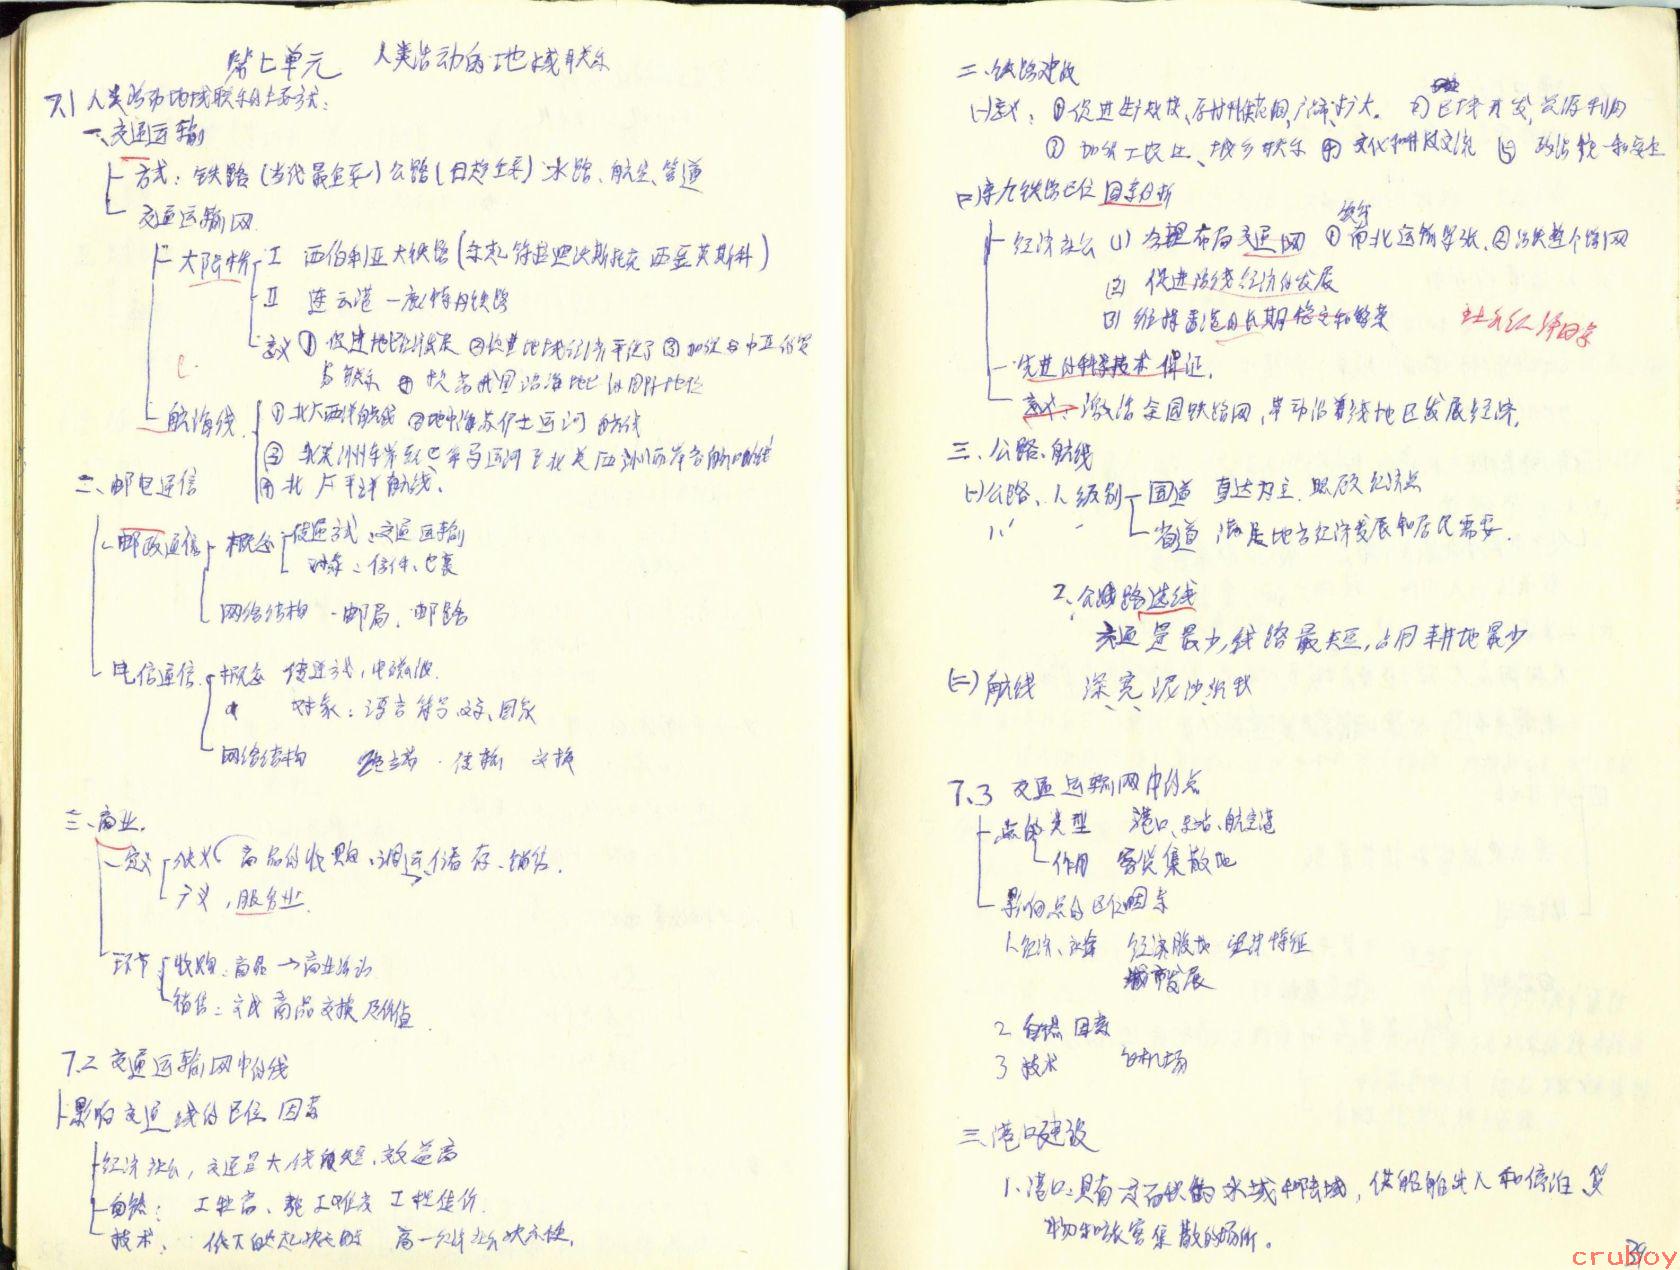 第七单元 人类活动的地域联系
7.1 人类活动地域联系的主要方式:
一、交通运输
方式: 铁路(当代最重要) 公路(日趋重要) 水路、航空、管道
交通运输网
大陆桥 I 西伯利亚大铁路(
II 连云港—鹿特丹铁路
意义 ① 促进地区发展 ② ③ 加强与中亚的贸
易联系 ④ 提高我国沿海地区的国际地位
航海线 ① 北大西洋航线 ②地中海苏伊士运河航线
③ 北美洲东岸经巴拿马运河至北美西洲西岸各航口航线
④ 北太平洋航线、
二、邮电通信
邮政通信 概念 传递方式:交通运输
对象:信件、包裹
网络结构 邮局、邮路
电信通信 概念 传递方式,电磁波.
对象:语言符号、文字、图象
网络结构 终端·传输 交换
三、商业.
定义 狭义 商品的收购、调运、储存、销售.
广义,服务业.
环节 收购:商品→商业活动
销售:完成商品交换及价值
7.2 交通运输网中的线
影响交通线的区位因素
经济社会,运量大线短,效益高
自然: 工程量、施工难度 工程造价.
技术:
二、铁路建设
(一)意义: 市场扩大. 区域开发,资源利用
加强工农业、城乡联系 ④ 文化和科技交流 ⑤ 政治统一和安全
(二)京九铁路区位因素分析
经济社会 (1) 合理布局交通网 ① 南北运输紧张,② 整个路网
(2) 促进沿线经济的发展
(3) 维持香港的长期稳定和繁荣 社会经济因素
先进的科学技术保证.
意义→激活全国铁路网,带动沿线地区发展经济.
三、公路、航线
(一)公路、1、级别 国道 直达为主.照顾经济点
省道 满足地方经济发展和居民需要.
2、公路选线
交通量最少,线路最短,占用耕地最少
(二)航线 深、宽、泥沙
7.3 交通运输网中的点
点的类型 港口、车站、航空港
作用 客货集散地
影响点的区位因素
1 经济、社会 经济腹地 经济特征
城市发展
2 自然因素
3 技术 机场
三、港口建设
1、港口:具有一定面积的水域和陆域,供船舶出入和停泊 货
物和旅客集散的场所。
39
cruboy